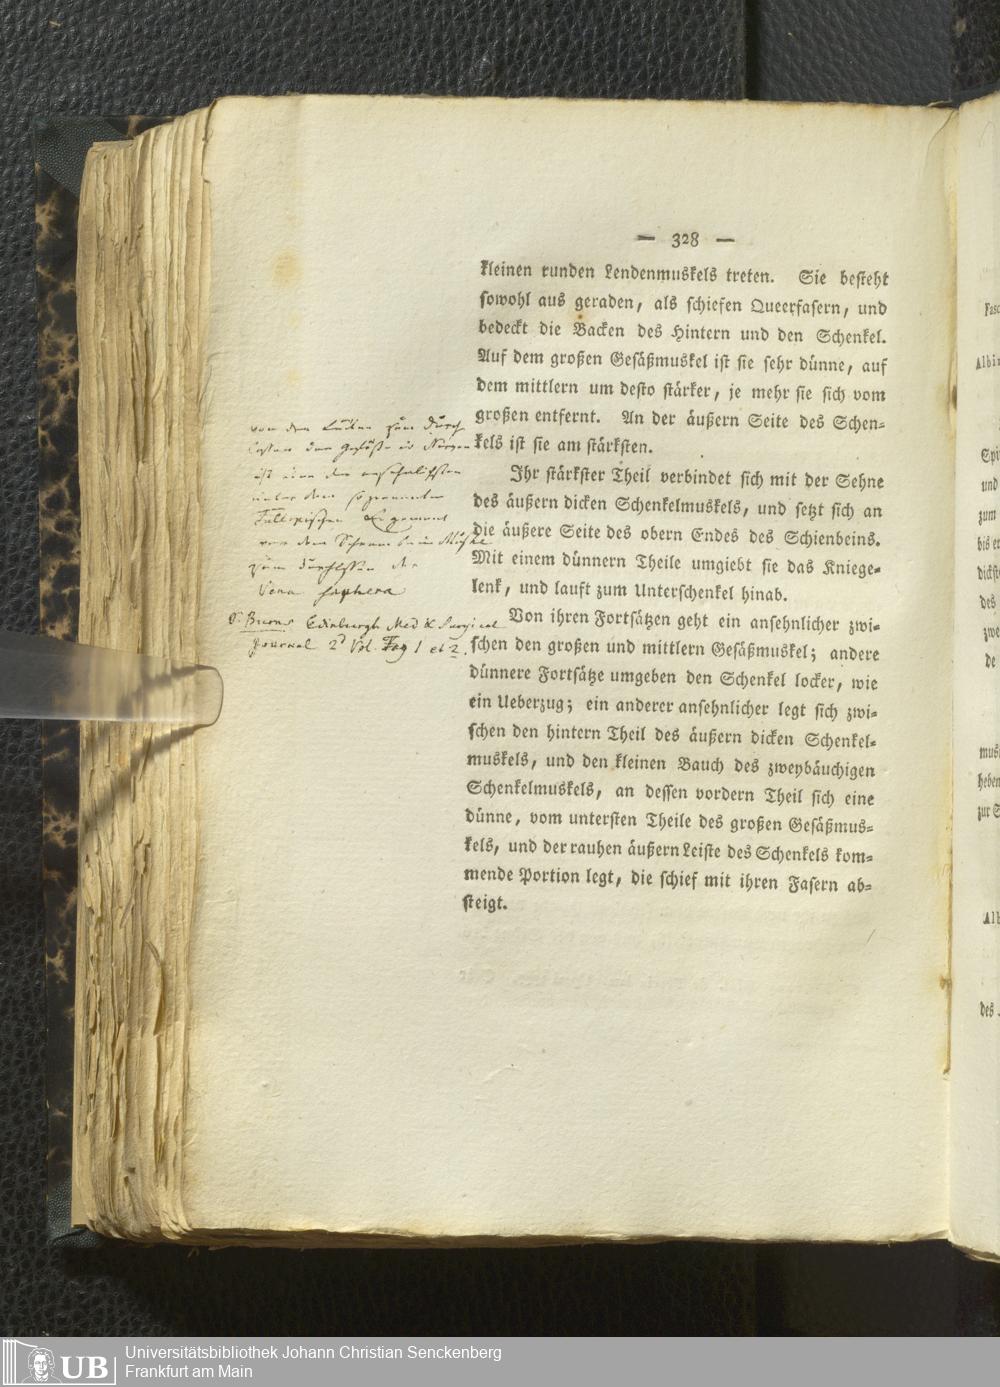 — 328 —
kleinen runden Lendenmuskels treten. Sie besteht
sowohl aus geraden, als schiefen Queerfasern, und
bedeckt die Backen des Hintern und den Schenkel.
Auf dem großen Gesäßmuskel ist sie sehr dünne, auf
dem mittlern um desto stärker, je mehr sie sich vom
großen entfernt. An der äußern Seite des Schen=
kels ist sie am stärksten.
Ihr stärkster Theil verbindet sich mit der Sehne
des äußern dicken Schenkelmuskels, und setzt sich an
die äußere Seite des obern Endes des Schienbeins.
Mit einem dünnern Theile umgiebt sie das Kniege=
lenk, und lauft zum Unterschenkel hinab.
Von ihren Fortsätzen geht ein ansehnlicher zwi=
schen den großen und mittlern Gesäßmuskel; andere
dünnere Fortsätze umgeben den Schenkel locker, wie
ein Ueberzug; ein anderer ansehnlicher legt sich zwi=
schen den hintern Theil des äußern dicken Schenkel=
muskels, und den kleinen Bauch des zweybäuchigen
Schenkelmuskels, an dessen vordern Theil sich eine
dünne, vom untersten Theile des großen Gesäßmus=
kels, und der rauhen äußern Leiste des Schenkels kom=
mende Portion legt, die schief mit ihren Fasern ab=
steigt.
von den Lücken zum Durch
lassen der Gefäße
ist eine der ansehnlichsten
unter dem sogenannten
Fallopischen Ligament
zum Durchlassen der
Vena saphena
S. Burns Edinburgh Med & Surgical
Journal 2d Vol. Fag 1 et 2.
Albin
und
zum
bis er
des
zwe
de
zur S
Alb
des
UB
Universitätsbibliothek Johann Christian Senckenberg
Frankfurt am Main